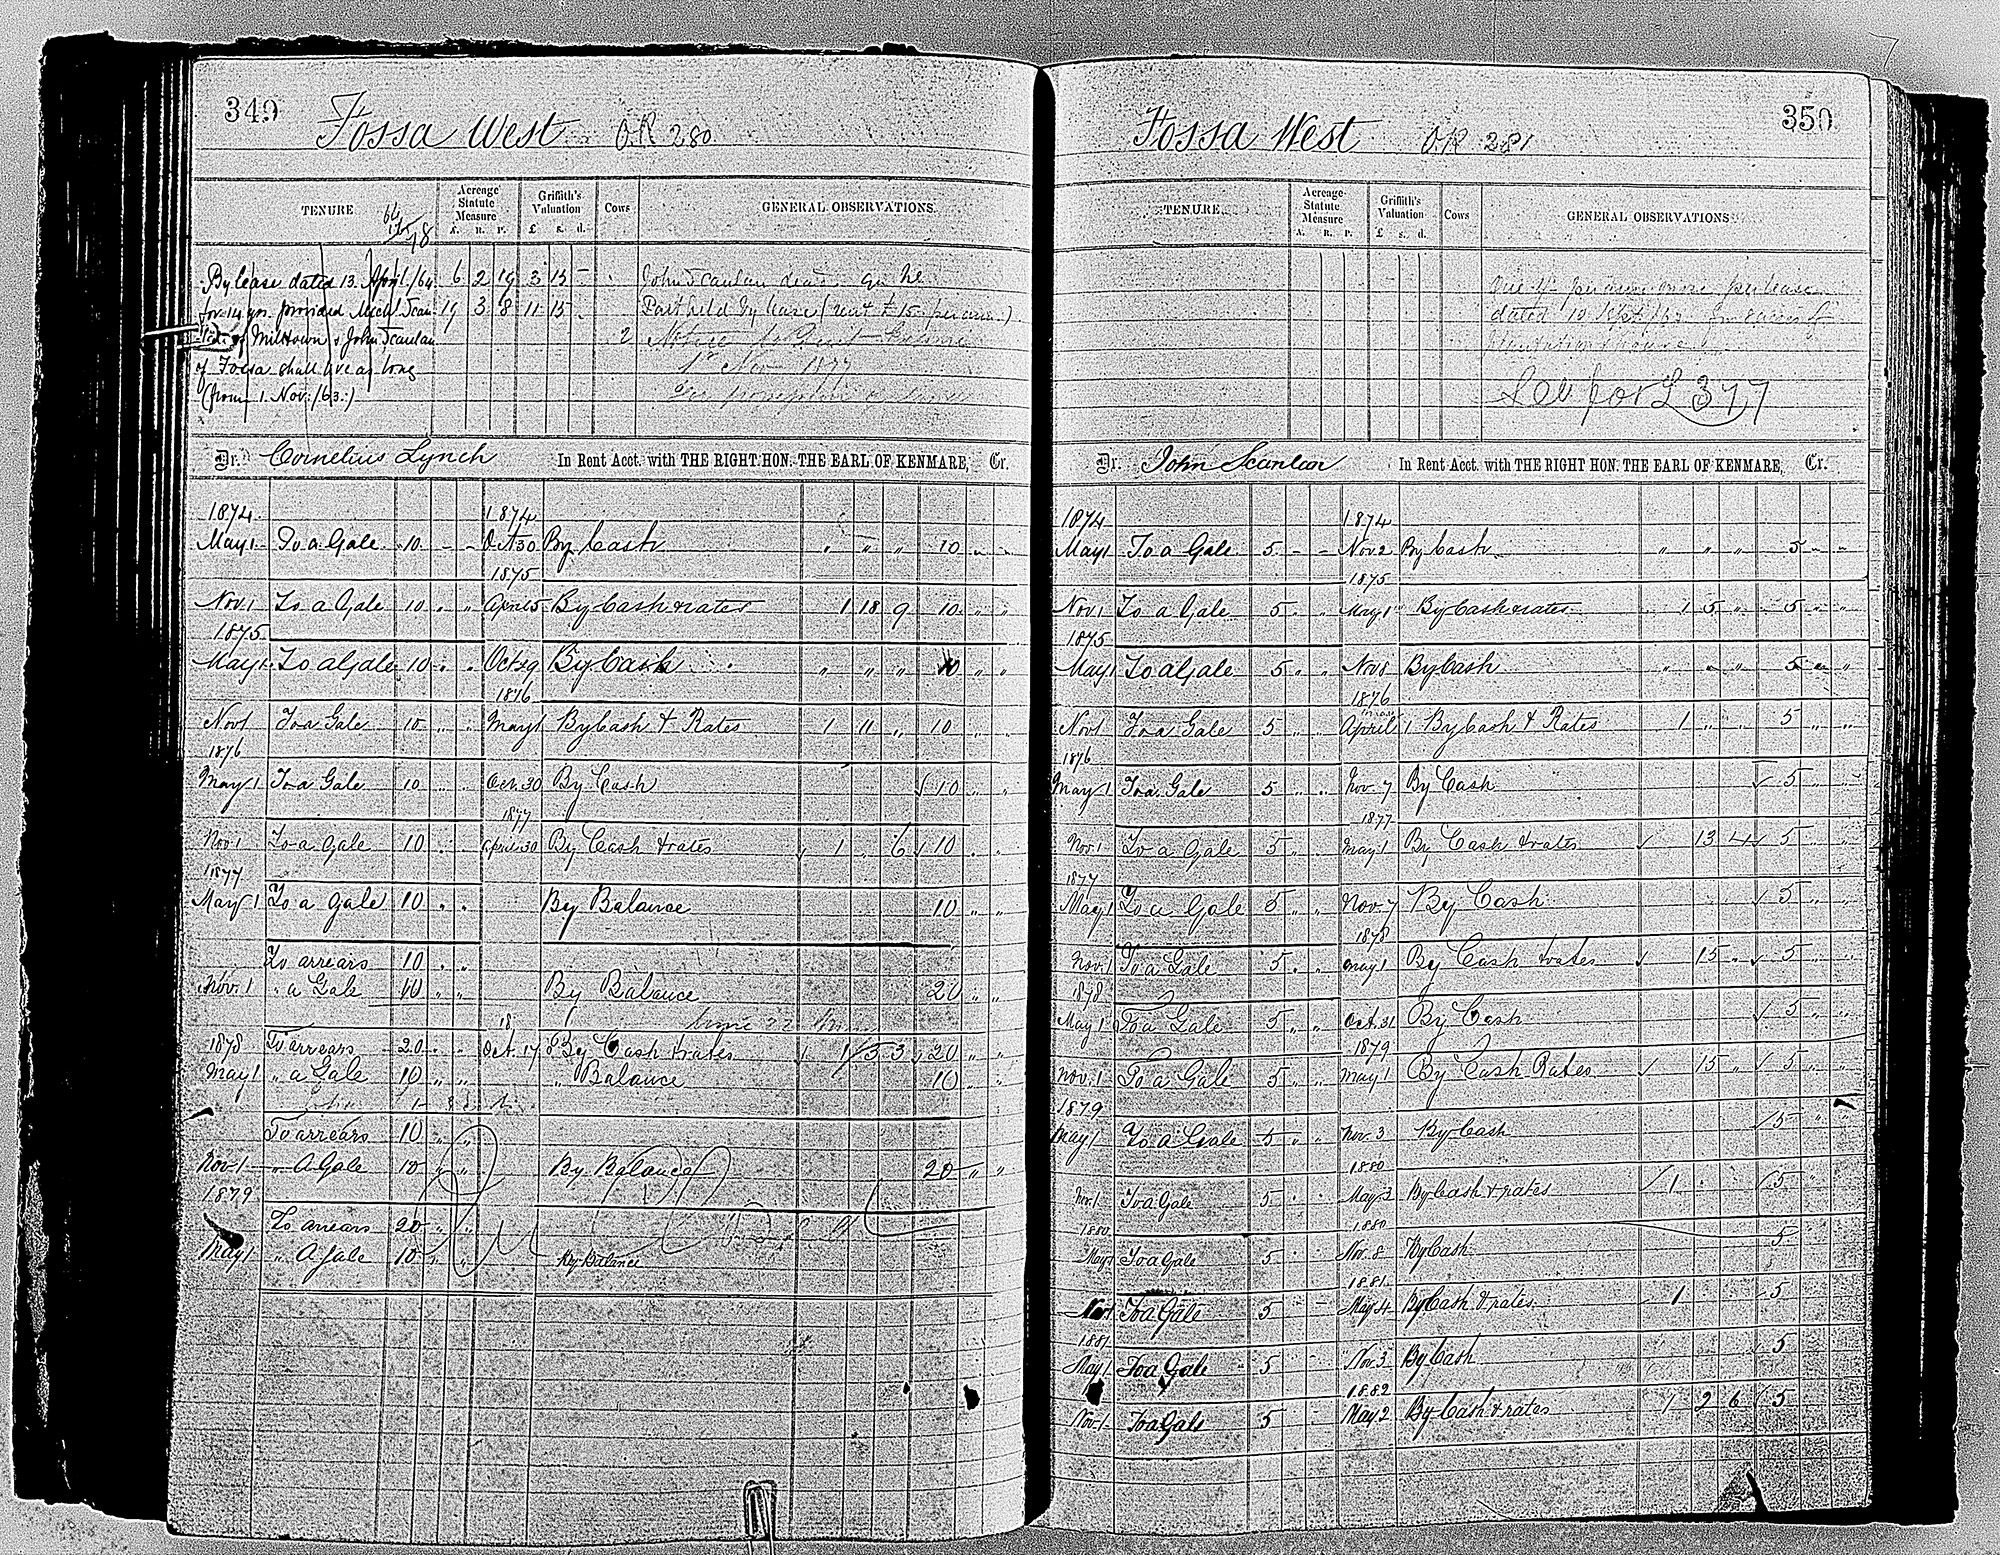 349
Fossa West O.R 280
TENURE
64
14
78
Acreage Statute Measure
A. R. P.
Griffith's Valuation
£ s. d.
Cows
GENERAL OBSERVATIONS.
By lease dated 13. April /64 6 2 19 3 15 -
for 14 yrs. provided Mich.l Scan- 19 3 8 11 15
of Milltown & John Scanlan 2
of Fossa shall live as long
(from 1. Nov. /63.)
John Scanlan dead
Part held by lease (rent £15 per ann.)
Notice to Quit
1st Nov 1877
Dr. Cornelius Lynch In Rent Acct. with THE RIGHT HON. THE EARL OF KENMARE, Cr.
1874 1874
May 1 To a Gale 10 - - Oct 30 By Cash " " " 10 " "
1875
Nov. 1 To a Gale 10 " " April 5 By Cash & rates 1 18 9 10 " "
1875
May 1 To a Gale 10 " " Oct 29 By Cash " " " 10 " "
1876
Nov 1 To a Gale 10 " " May 1 By Cash & Rates 1 11 " 10 " "
1876
May 1 To a Gale 10 " " Oct. 30 By Cash 10 " "
1877
Nov. 1 To a Gale 10 " " April 30 By Cash & rates 1 " 6 10 " "
1877
May 1 To a Gale 10 " " By Balance 10 " "
To arrears 10 " "
Nov. 1 " a Gale 10 " " By Balance 20 " "
1878 To arrears 20 " " Oct. 17 By Cash & rates 1 3 3 20 " "
May 1 " a Gale 10 " " " Balance 10 " "
To arrears 10 " "
Nov. 1 " A Gale 10 " " By Balance 20 " "
1879
To arrears 20 " "
May 1 " A Gale 10 " " By Balance
350
Fossa West O.R 281
TENURE
Acreage Statute Measure
A. R. P.
Griffith's Valuation
£ s. d.
Cows
GENERAL OBSERVATIONS
per lease
dated 10 Sept /63
Plantation & house
See for L 377
Dr. John Scanlan In Rent Acct. with THE RIGHT HON. THE EARL OF KENMARE, Cr.
1874 1874
May 1 To a Gale 5 - - Nov 2 By Cash " " " 5 " "
1875
Nov. 1 To a Gale 5 " " May 1 By Cash & rates 1 5 " 5 " "
1875
May 1 To a Gale 5 " " Nov 8 By Cash " " " 5 " "
1876
Nov 1 To a Gale 5 " " April 1 By Cash & Rates 1 " " 5 " "
1876
May 1 To a Gale 5 " " Nov. 7 By Cash 5 " "
1877
Nov. 1 To a Gale 5 " " May 1 By Cash & rates 13 4 5 " "
1877
May 1 To a Gale 5 " " Nov. 7 By Cash 5 " "
1878
Nov. 1 To a Gale 5 " " May 1 By Cash & rates 15 " 5 " "
1878
May 1 To a Gale 5 " " Oct. 31 By Cash 5 " "
1879
Nov. 1 To a Gale 5 " " May 1 By Cash Rates 15 " 5 " "
1879
May 1 To a Gale 5 " " Nov. 3 By Cash 5 " "
1880
Nov. 1 To a Gale 5 " " May 3 By Cash & rates 1 " " 5 " "
1880 1880
May 1 To a Gale 5 " " Nov. 8 By Cash 5 " "
1881
Nov 1 To a Gale 5 " " May 4 By Cash & rates 1 5 " "
1881
May 1 To a Gale 5 Nov. 3 By Cash 5
1882
Nov. 1 To a Gale 5 May 2 By Cash & rates 1 2 6 5